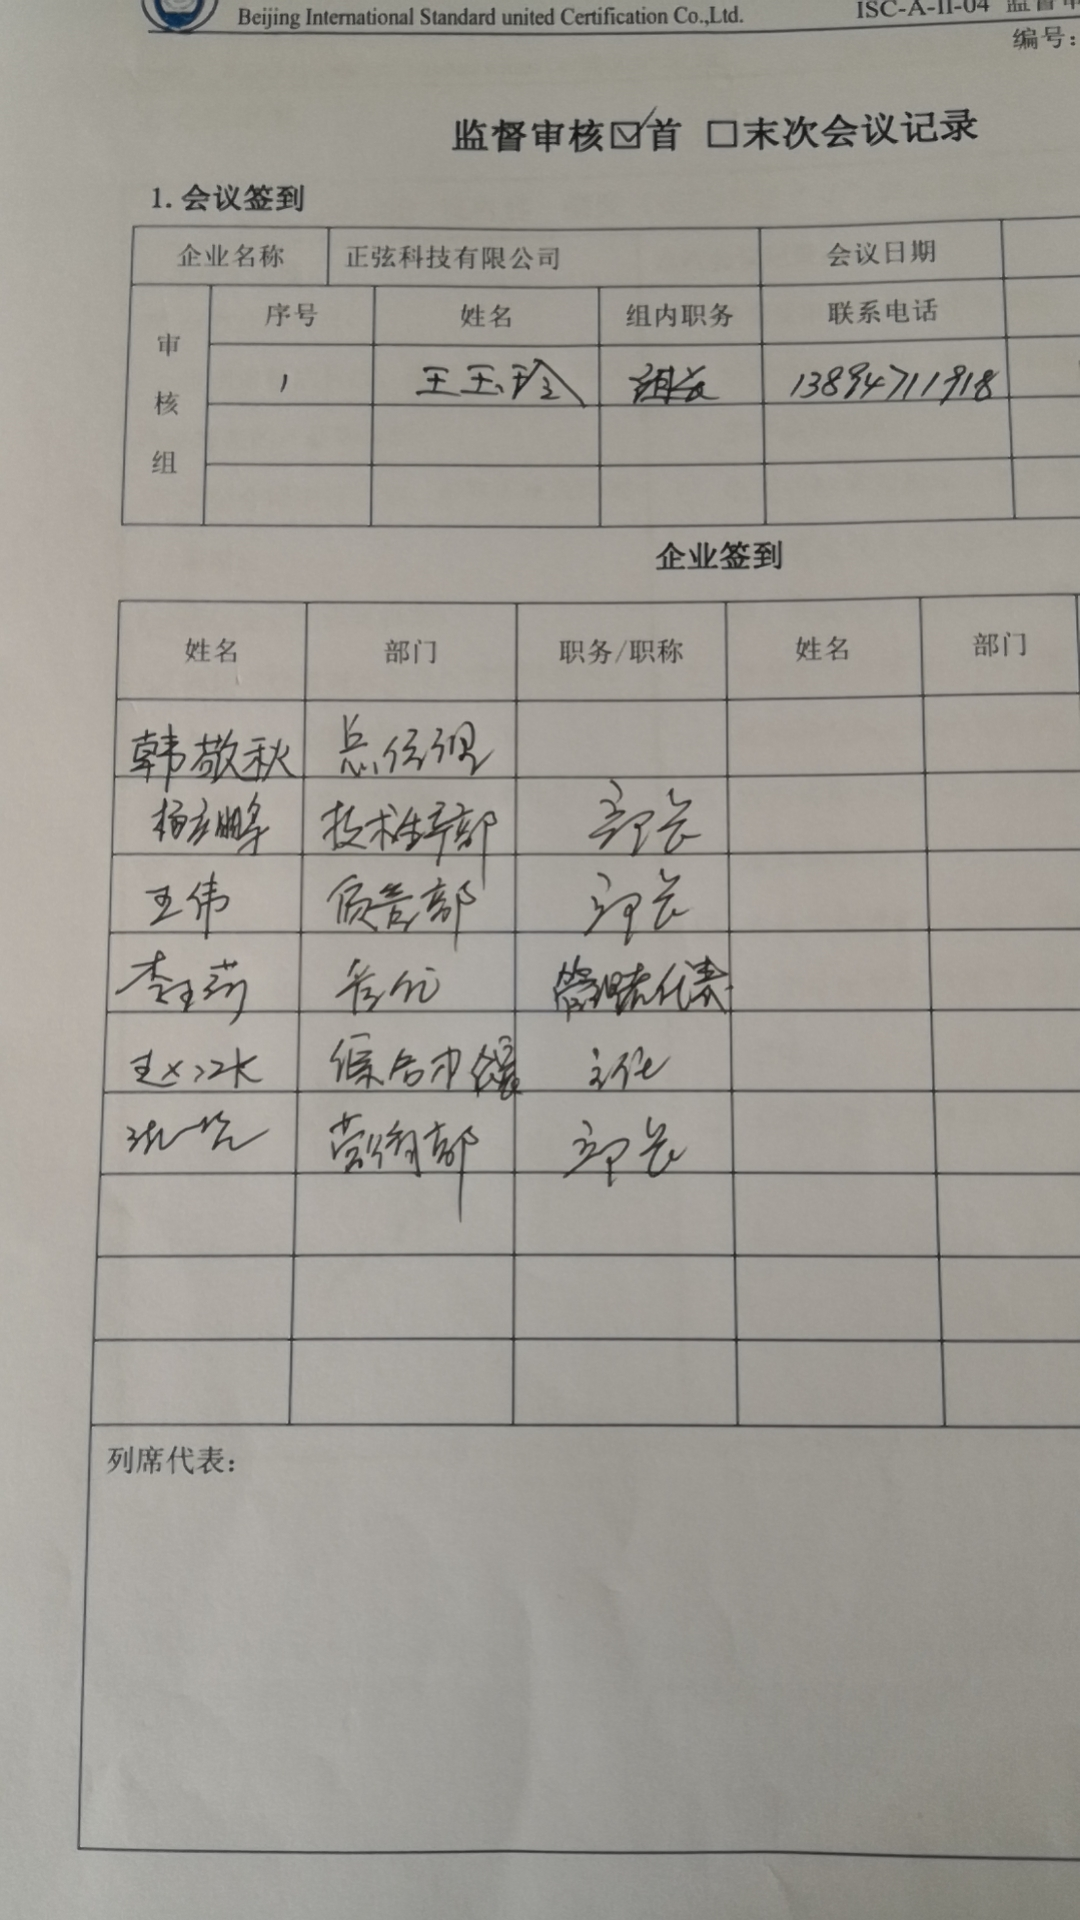 Beijing International Standard united Certification Co.,Ltd.
ISC-A-II-04 监督审
编号：
监督审核☑首 □末次会议记录
1. 会议签到
企业名称 正弦科技有限公司 会议日期
审核组 序号 姓名 组内职务 联系电话
1 王玉玲 组长 13894711918
企业签到
姓名 部门 职务/职称 姓名 部门
韩敬秋 总经理
技术生产部 部长
王伟 质管部 部长
李玉莉 管代 管理者代表
综合办 主任
营销部 部长
列席代表：